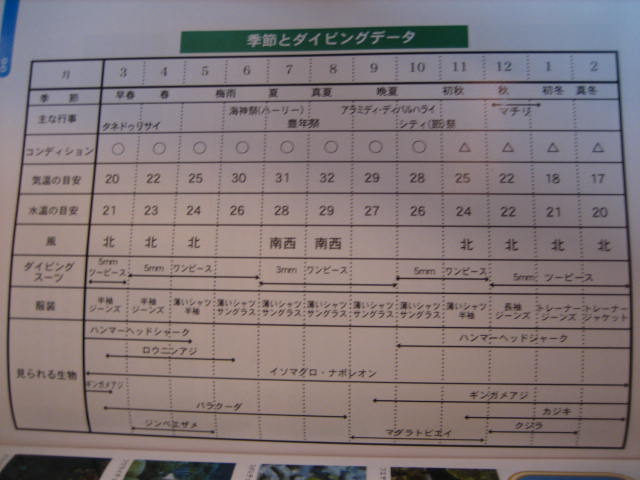 季節とダイビングデータ
月 3 4 5 6 7 8 9 10 11 12 1 2
季節 早春 春 梅雨 夏 真夏 晩夏 初秋 秋 初冬 真冬
主な行事 タネドゥリサイ 海神祭(ハーリー) 豊年祭 アラミディ・ディバルハライ シティ(節)祭 マチリ
コンディション ○ ○ ○ ○ ○ ○ ○ ○ △ △ △ △
気温の目安 20 22 25 30 31 32 29 28 25 22 18 17
水温の目安 21 23 24 26 28 29 27 26 24 22 21 20
風 北 北 北 南西 南西 北 北 北 北
ダイビングスーツ 5mm ツーピース 5mm ワンピース 3mm ワンピース 5mm ワンピース 5mm ツーピース
服装 半袖 ジーンズ 半袖 ジーンズ 薄いシャツ 半袖 薄いシャツ サングラス 薄いシャツ サングラス 薄いシャツ サングラス 薄いシャツ サングラス 薄いシャツ サングラス 薄いシャツ 半袖 長袖 ジーンズ トレーナー ジーンズ トレーナー ジャケット
見られる生物
ハンマーヘッドシャーク ハンマーヘッドジャーク
ロウニンアジ
イソマグロ・ナポレオン
ギンガメアジ ギンガメアジ
バラクーダ カジキ
ジンベエザメ マダラトビエイ クジラ